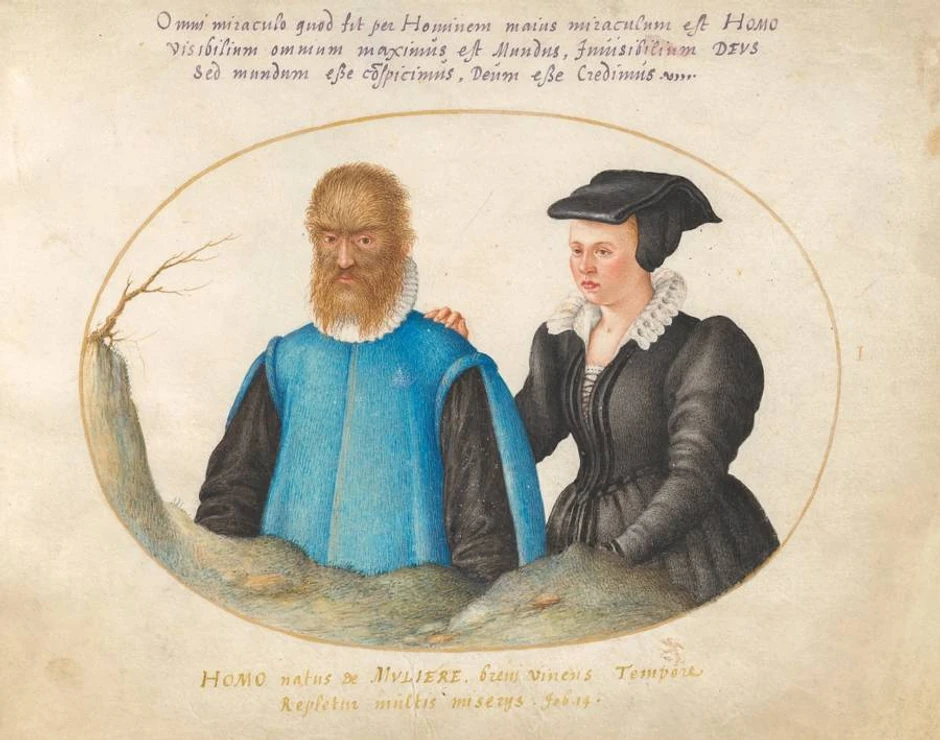 Omni miraculo quod fit per Hominem maius miraculum est HOMO
Visibilium omnium maximus est Mundus, Inuisibilium DEVS
Sed mundum eße cōspicimus, Deum eße Credimus
I
HOMO natus de MVLIERE. breui viuens Tempore
Repletur multis miserys. Job 14.